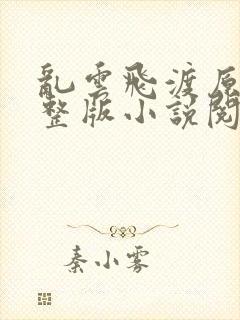 亂雲飛渡原
整版小說閱
秦小霧